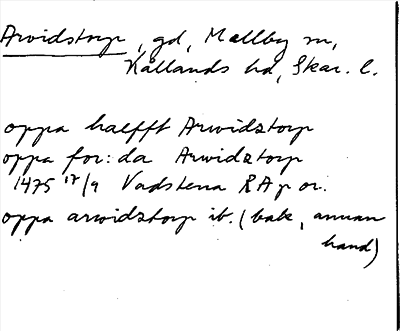 Arvidstorp, gd, Mellby sn,
Kållands hd, Skar. l.
oppa halfft Arwidztorp
oppa for:da Arwidztorp
1475 17/9 Vadstena RAp or.
oppa arwidztorp ib. (bak, annan
hand)